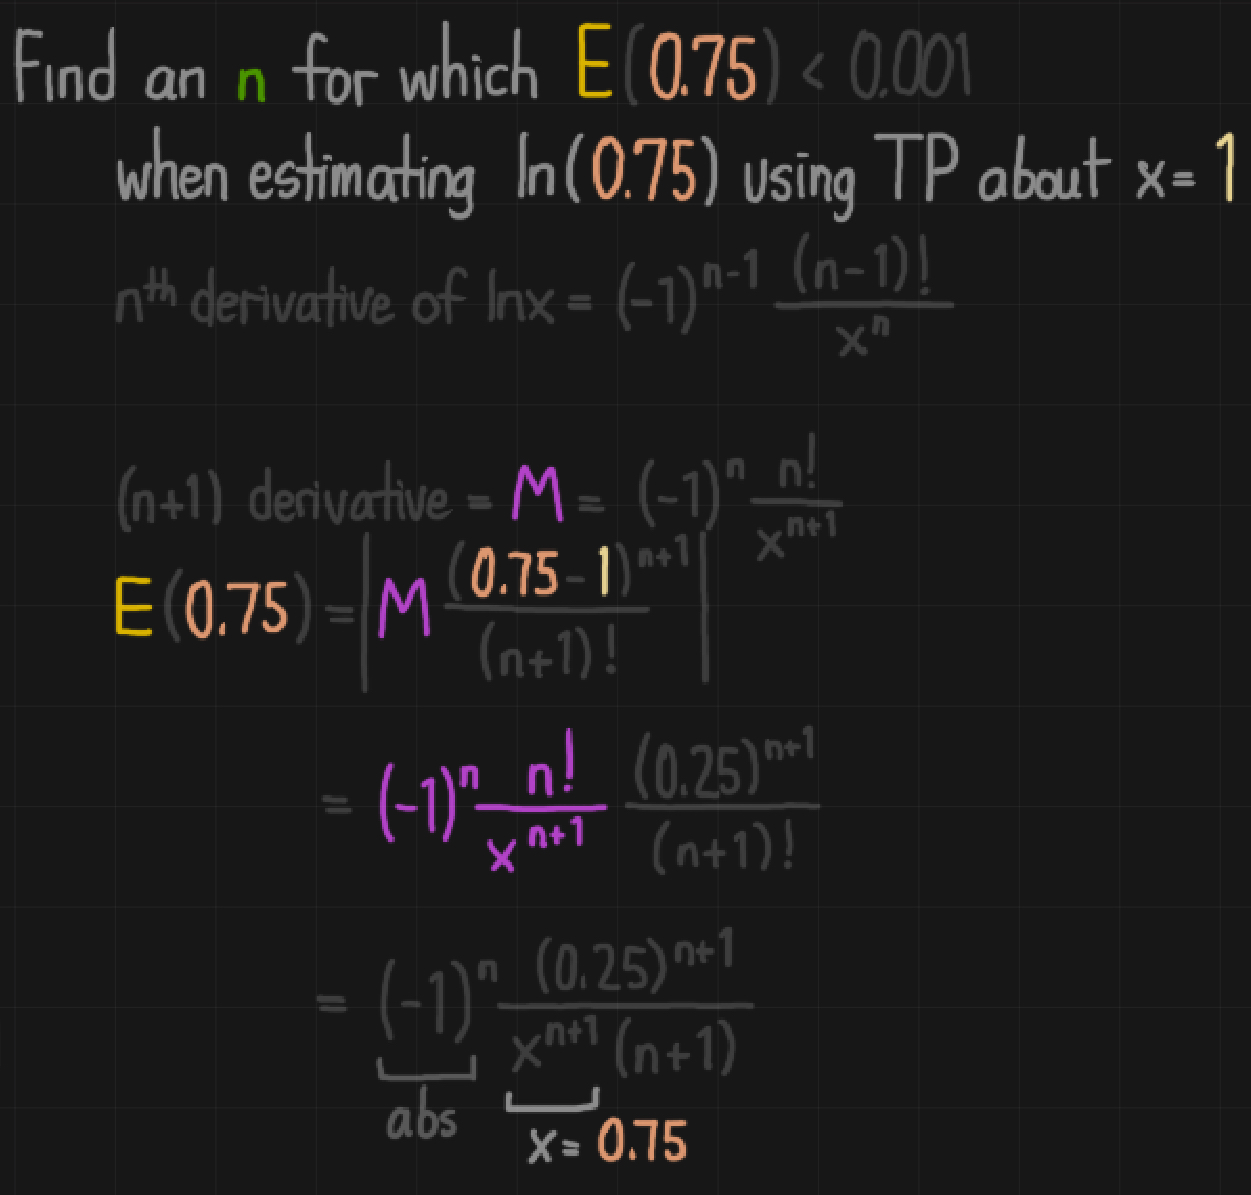 Find an n for which E(0.75) < 0.001
when estimating ln(0.75) using TP about x = 1
nth derivative of lnx = (-1)^(n-1) (n-1)!/x^n
(n+1) derivative = M = (-1)^n n!/x^(n+1)
E(0.75) = |M (0.75-1)^(n+1)/(n+1)!|
= (-1)^n n!/x^(n+1) (0.25)^(n+1)/(n+1)!
= (-1)^n (0.25)^(n+1)/x^(n+1) (n+1)
abs
x = 0.75